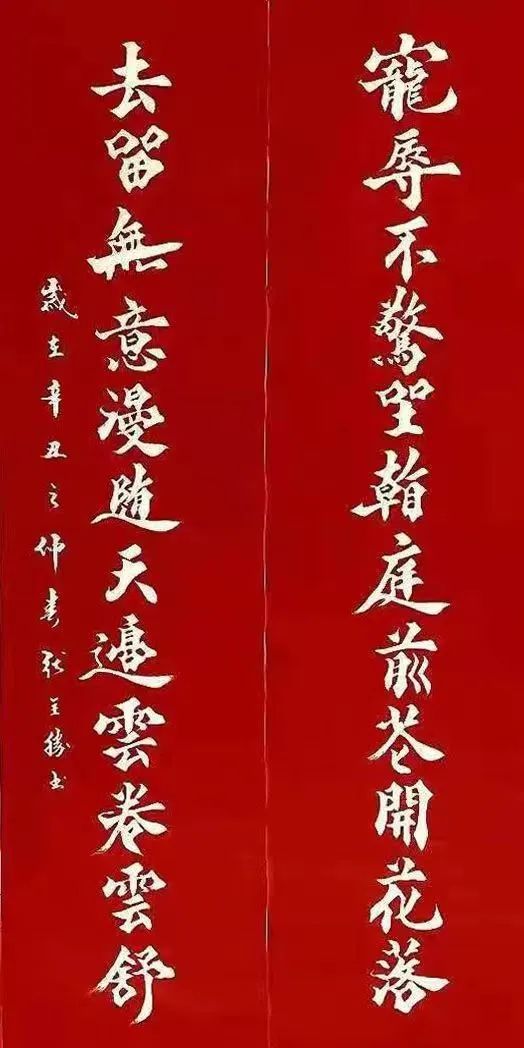 寵辱不驚坐看庭前花開花落
去留無意漫隨天邊雲卷雲舒
歲在辛丑之仲春勝書